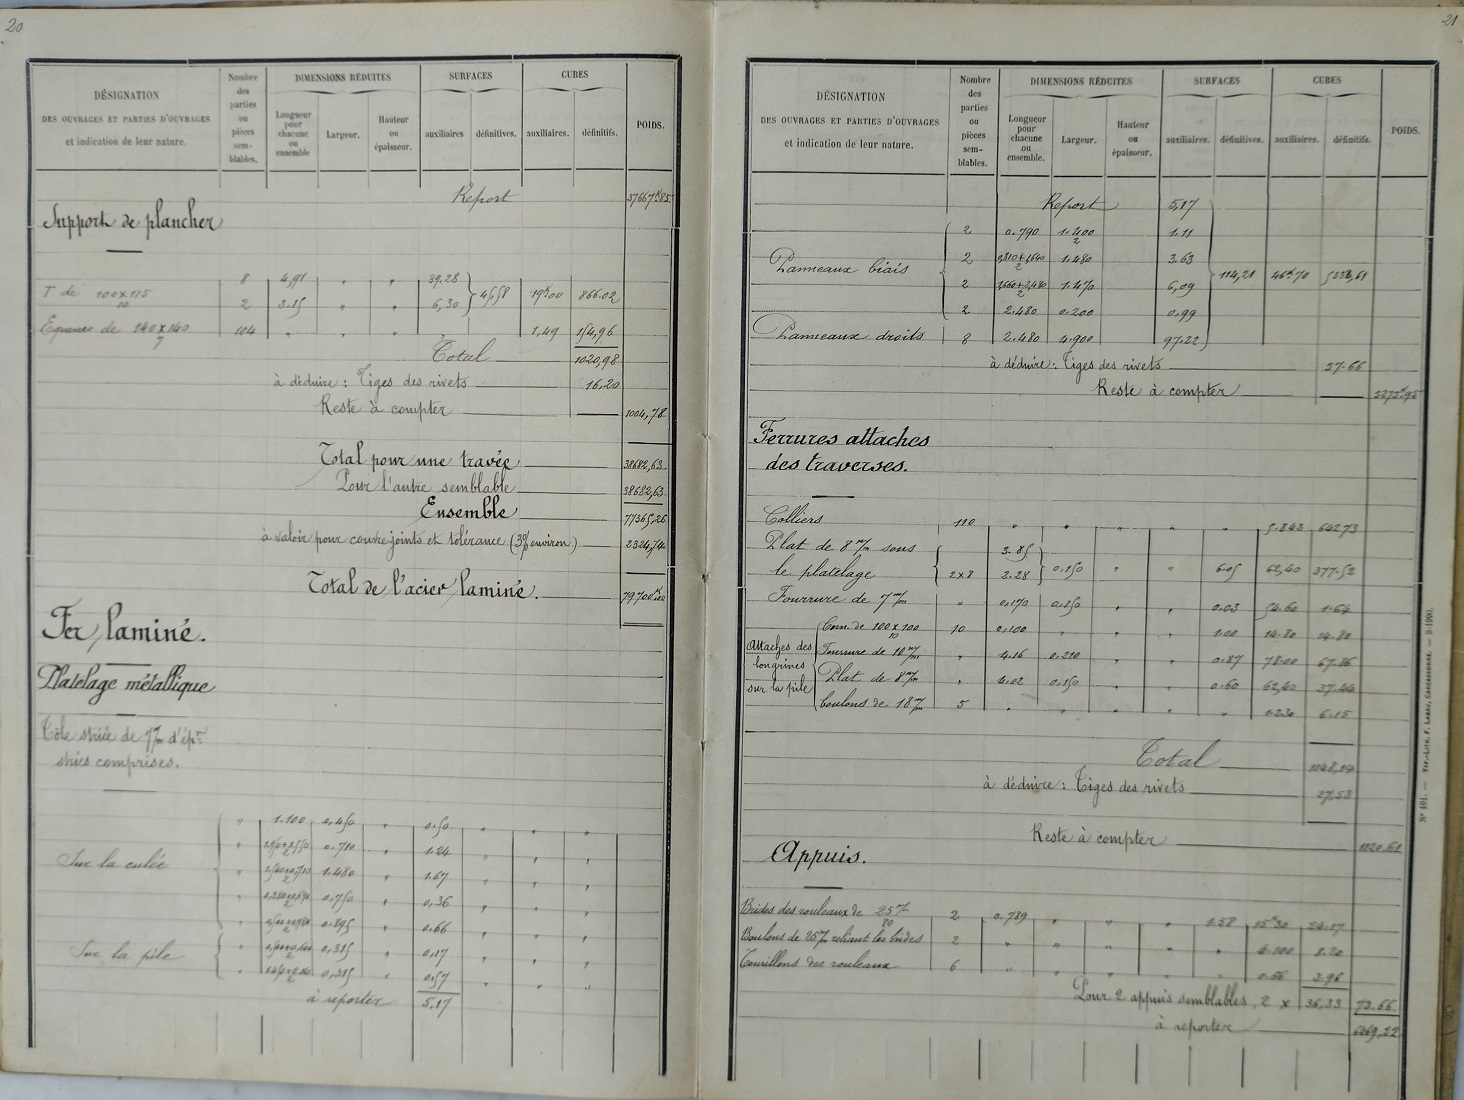 20
DÉSIGNATION
DES OUVRAGES ET PARTIES D'OUVRAGES
et indication de leur nature.
Nombre des parties ou pièces sem-blables.
DIMENSIONS RÉDUITES
Longueur pour chacune ou ensemble
Largeur.
Hauteur ou épaisseur.
SURFACES
auxiliaires
définitives.
CUBES
auxiliaires.
définitifs.
POIDS.
Report 37667k85
Support de plancher
T de 100x115/10 8 4,91 " " 39.28
2 3.15 " " 6,30 45,58 19k00 866.02
Equerres de 140x140/7 104 " " " " 1,49 154,96
Total 1020,98
à déduire : Tiges des rivets 16,20
Reste à compter 1004,78
Total pour une travée 38682,63
Pour l'autre semblable 38682,63
Ensemble 77365,26
à valoir pour couvre joints et tolérance (3% environ) 2324,74
Total de l'acier laminé. 79700k00
Fer laminé.
Platelage métallique
Tôle striée de 7m/m d'épr
stries comprises.
" 1.100 0,450 " 0,50 " " "
Sur la culée " 0.710 " 1.24 " " "
" 1.480 " 1.67 " " "
" 0.750 " 0,36 " " "
" 0.895 " 0.66 " " "
Sur la pile " 0,315 " 0,17 " " "
" 0,315 " 0,57 " " "
à reporter 5.17
21
DÉSIGNATION
DES OUVRAGES ET PARTIES D'OUVRAGES
et indication de leur nature.
Nombre des parties ou pièces sem-blables.
DIMENSIONS RÉDUITES
Longueur pour chacune ou ensemble.
Largeur.
Hauteur ou épaisseur.
SURFACES
auxiliaires.
définitives.
CUBES
auxiliaires.
définitifs.
POIDS.
Report 5,17
2 0.790 1.400/2 1.11
Panneaux biais 2 1.480 3.63
2 1660+2,480/2 1.470 6,09 114,21 46k70 5333,61
2 2.480 0.200 0.99
Panneaux droits 8 2.480 4.900 97.22
à déduire : Tiges des rivets 57.66
Reste à compter 5275k95
Ferrures attaches
des traverses.
Colliers 110 " " " " " 5.843 642.73
Plat de 8m/m sous 3.85
le platelage 2x8 2.28 0.150 " " 6.05 62,40 377.52
Fourrure de 7m/m " 0.170 0.150 " " 0.03 54.60 1.64
Attaches des longrines sur la pile
Corn. de 100x100/10 10 0.100 " " " 1.00 14.80 14.80
Fourrure de 10m/m " 4.16 0.210 " " 0.87 78.00 67.86
Plat de 8m/m " 4.02 0.150 " " 0.60 62,40 37.44
boulons de 18m/m 5 " " " " " 1.230 6.15
Total 1048,14
à déduire : Tiges des rivets 27,53
Reste à compter 1020,61
Appuis.
Brides des rouleaux de 257/80 2 0.789 " " " 1.58 15k30 24.17
Boulons de 25m/m reliant les brides 2 " " " " " 4.100 8.20
Tourillons des rouleaux 6 " " " " " 0.66 3.96
Pour 2 appuis semblables 2 x 36,33 72.66
à reporter 6369,22
Nº 101. — TYP.-LITH. F. LABAU, CARCASSONNE. — 9-1900.